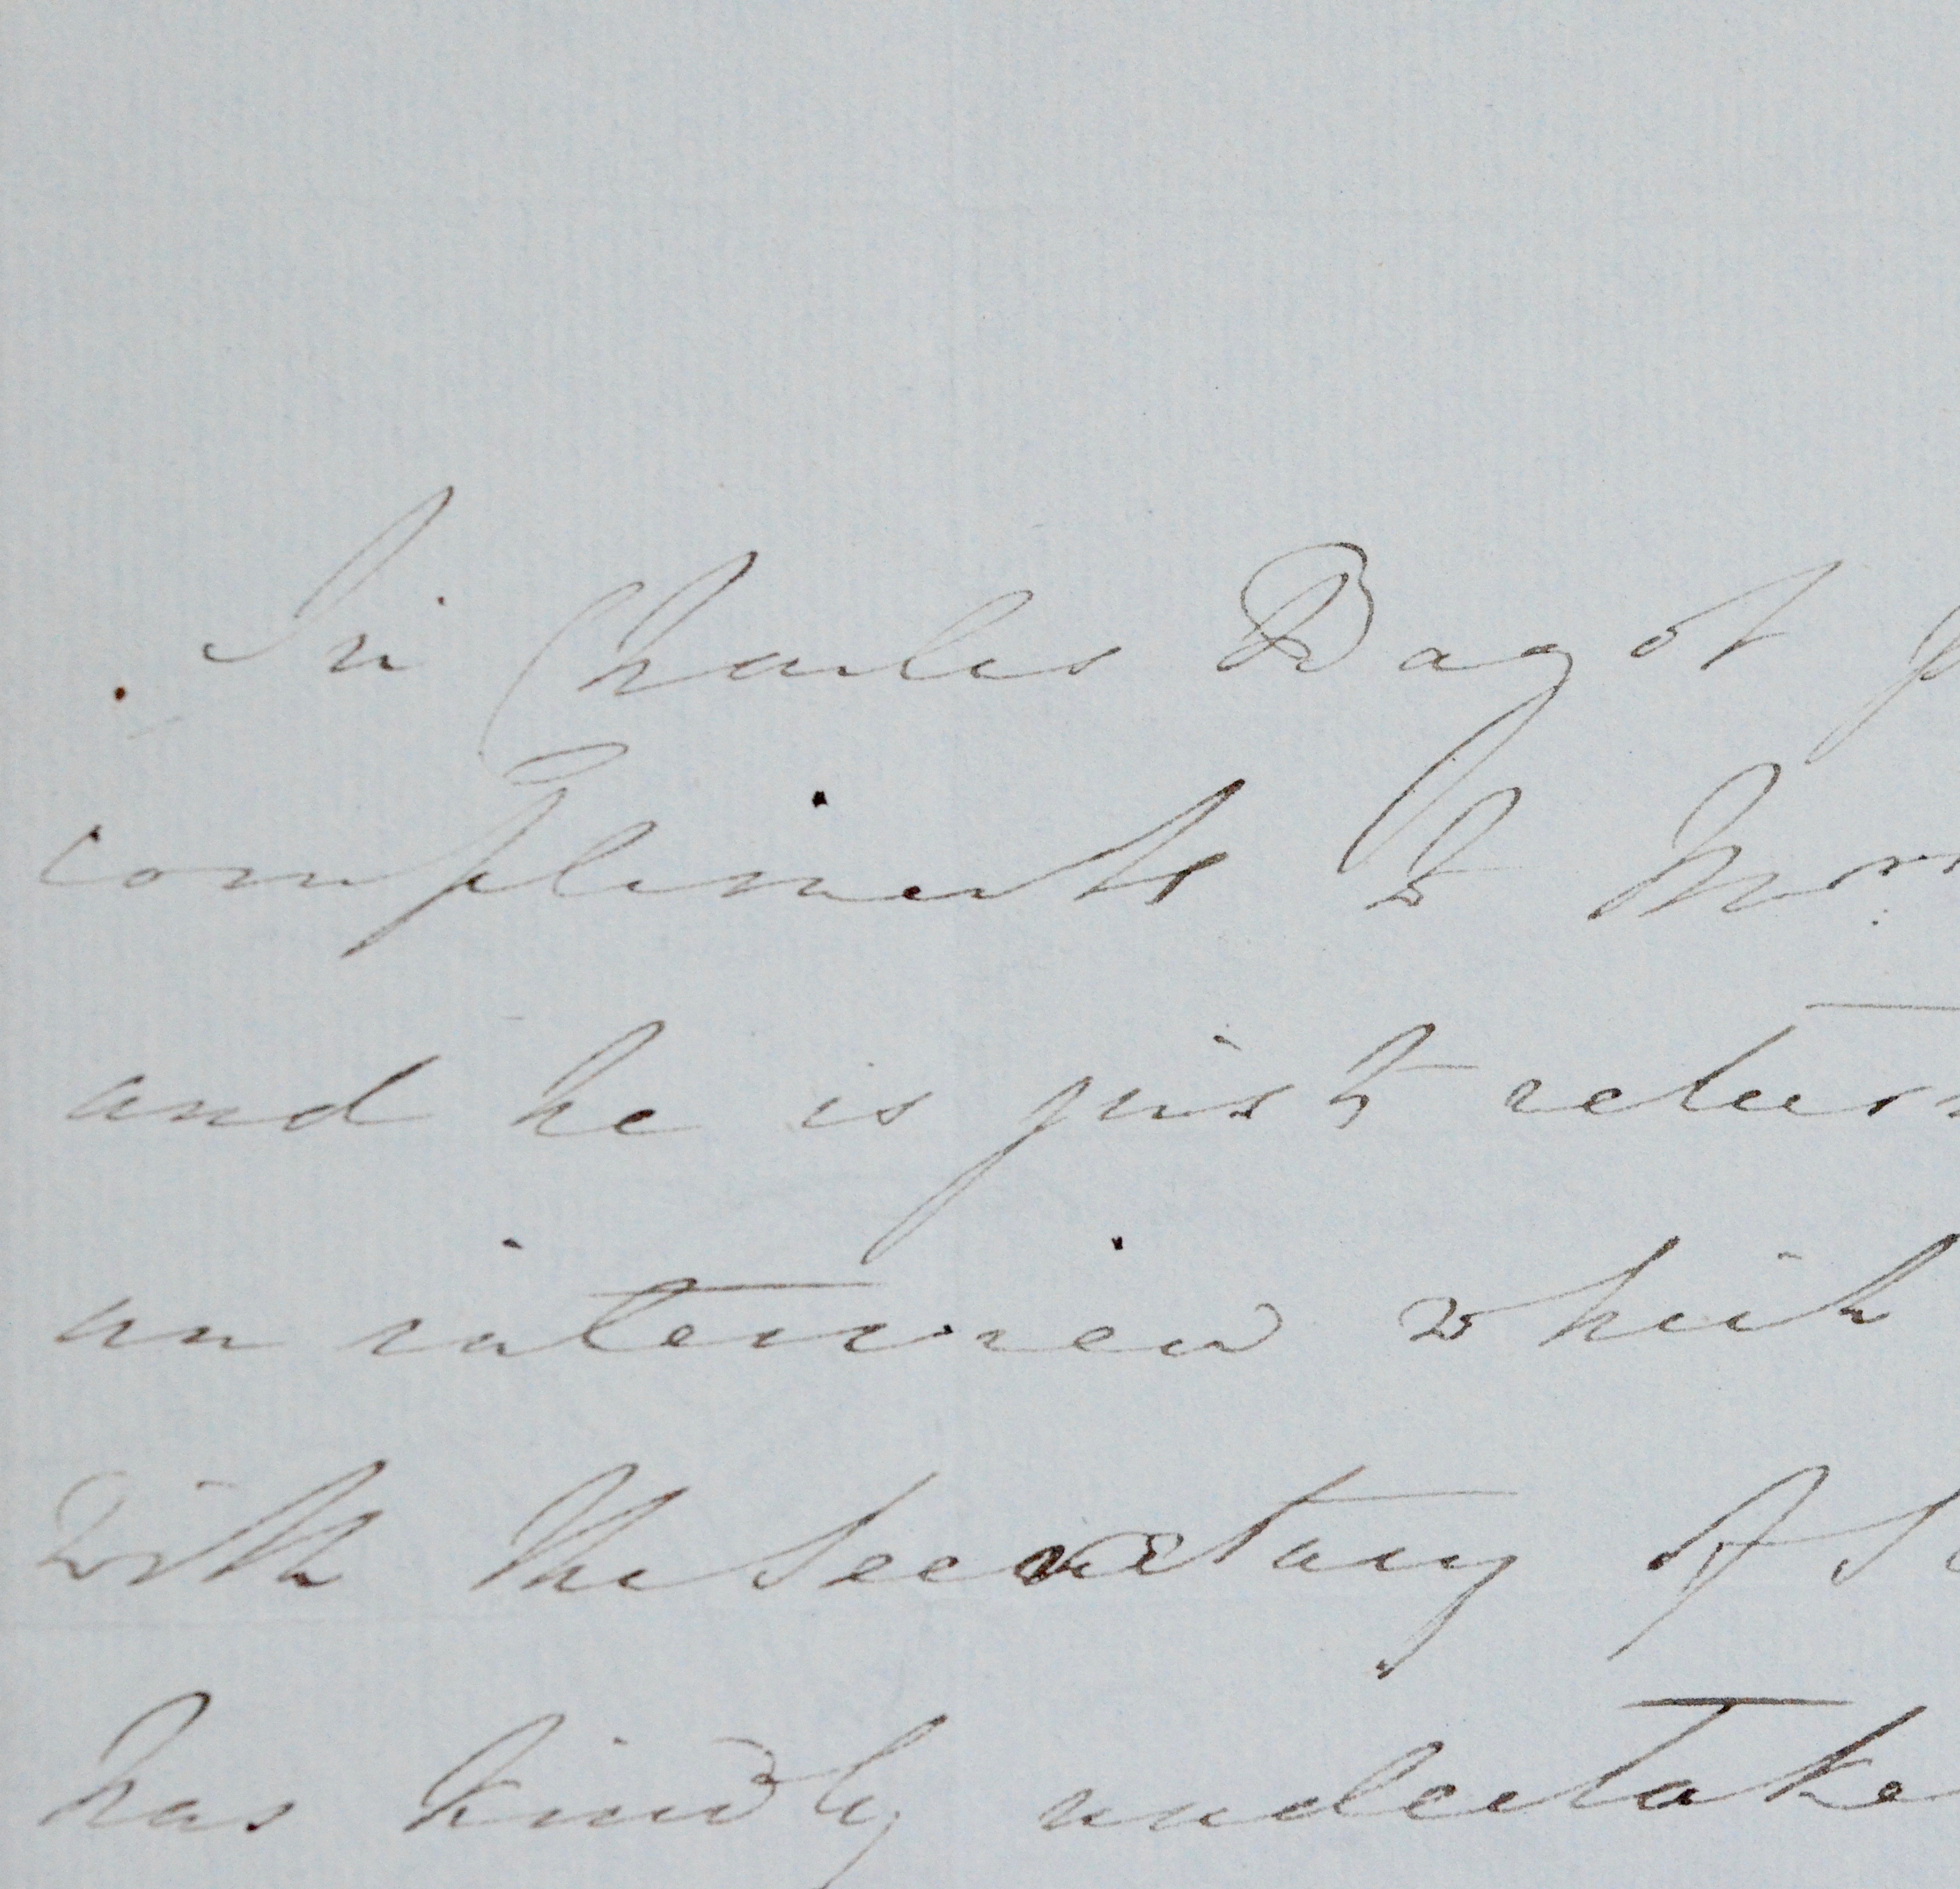 Sir Charles Bagot p
compliments to
and he is just return
an interview which
with the Secretary of St
has kindly undertake